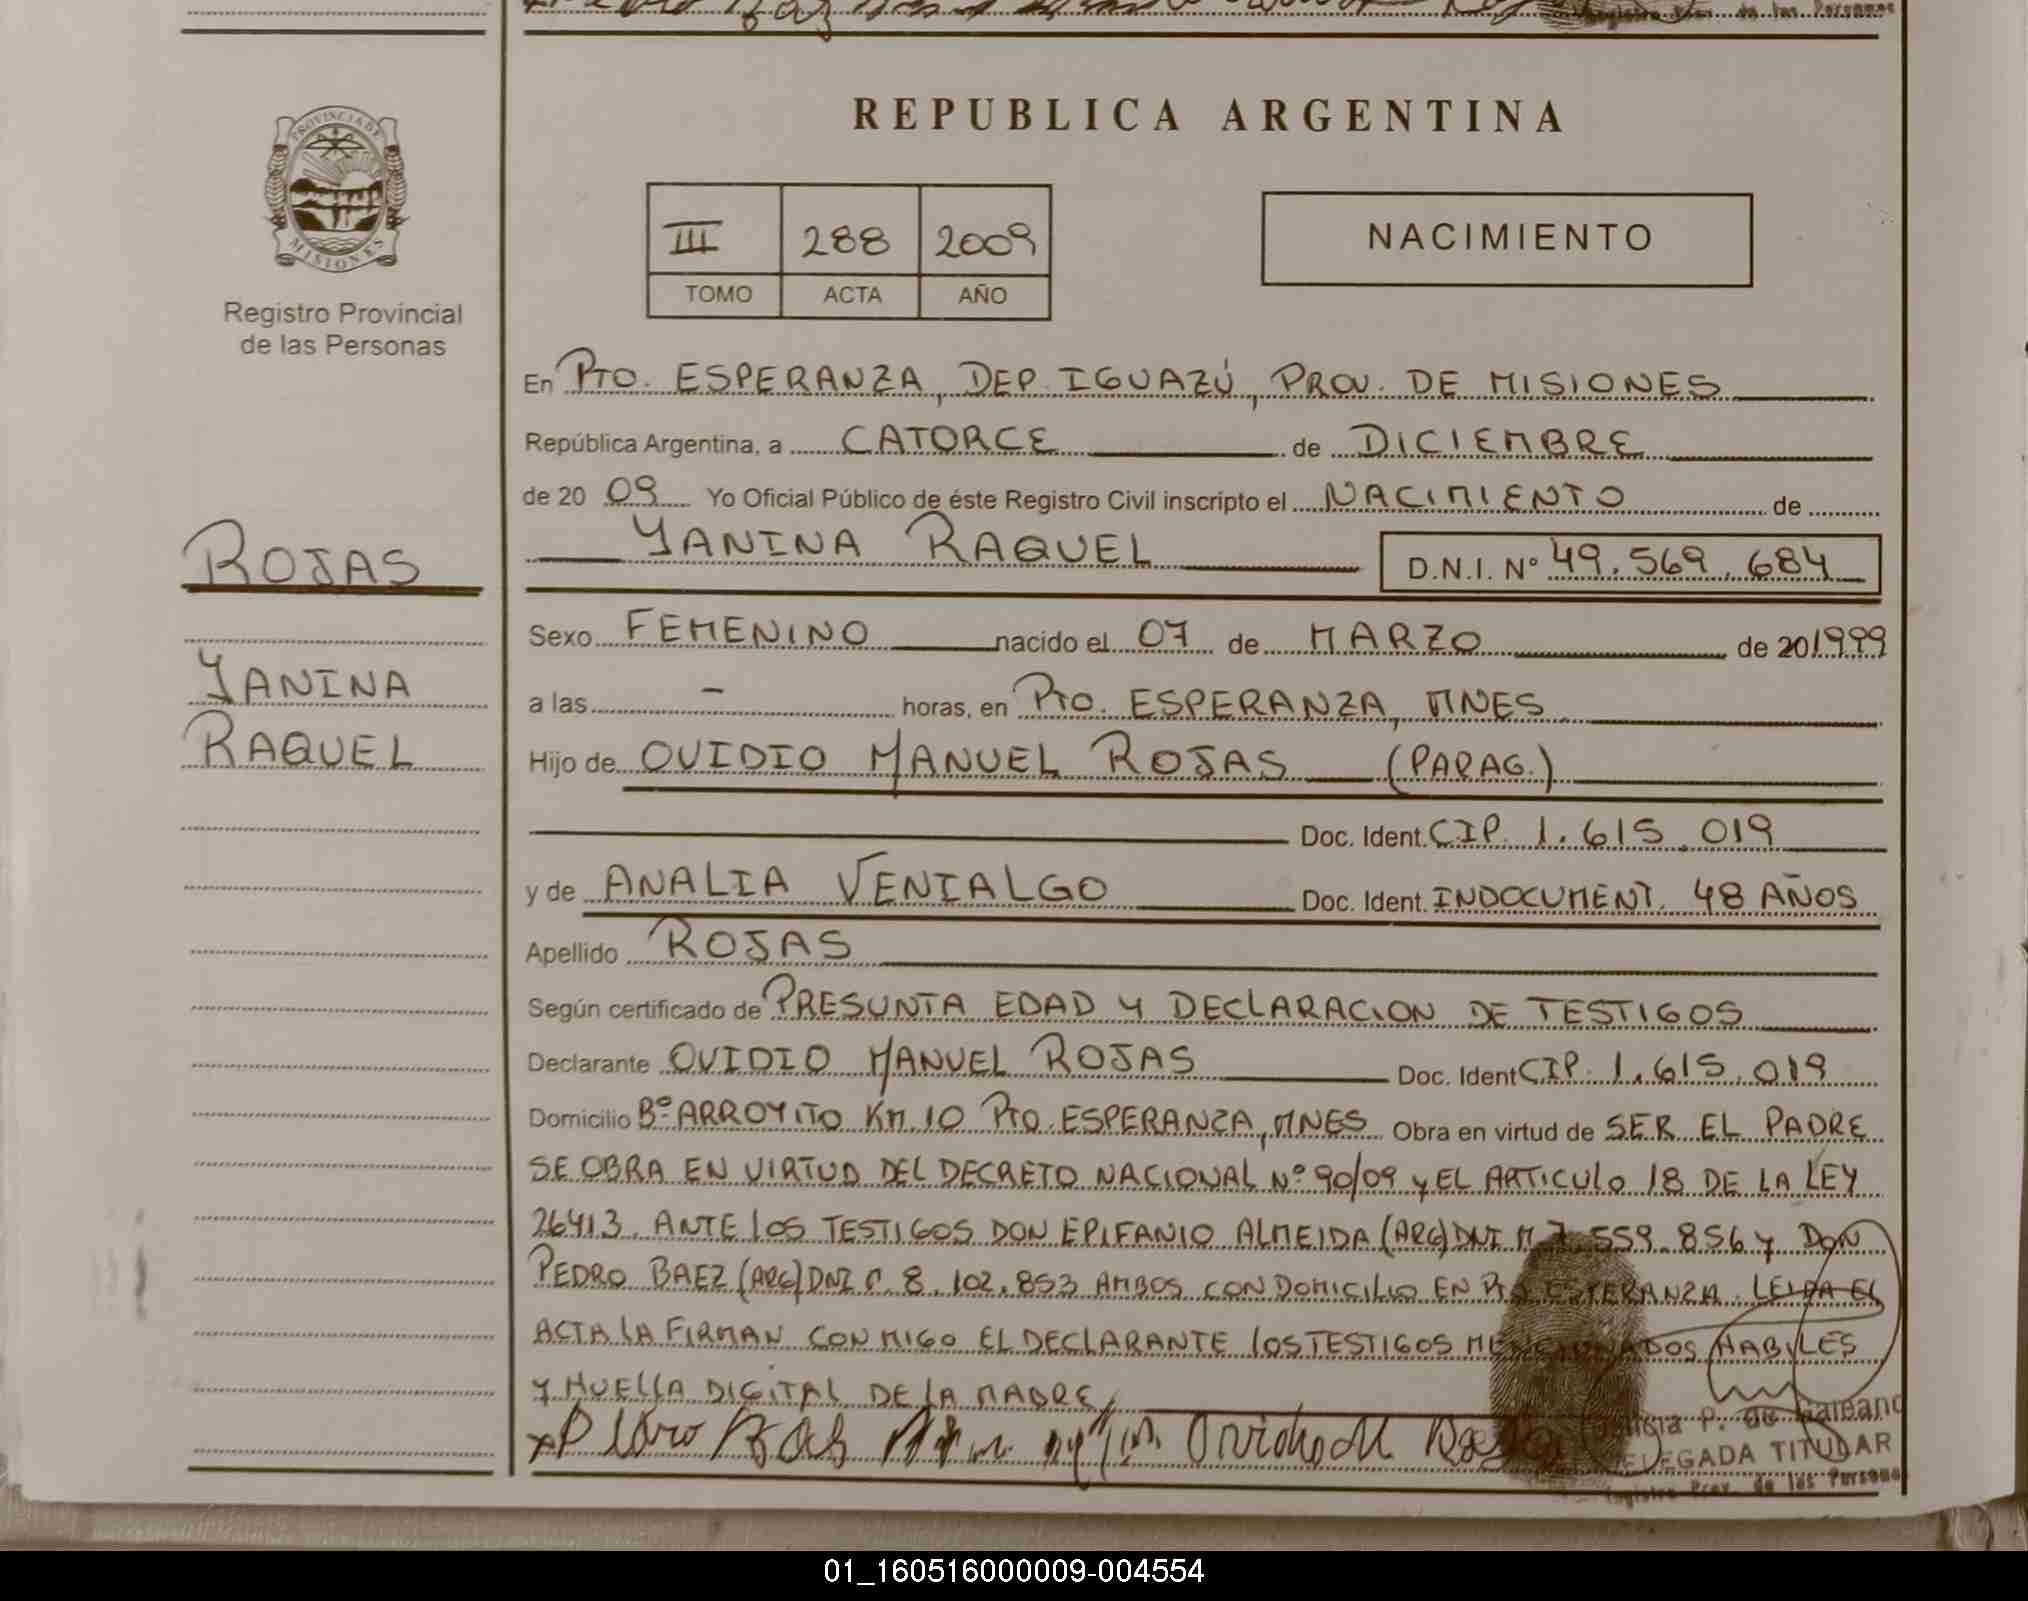 REPUBLICA ARGENTINA
PROVINCIA DE
MISIONES
Registro Provincial
de las Personas
III 288 2009
TOMO ACTA AÑO
NACIMIENTO
En PTO. ESPERANZA, DEP. IGUAZÚ, PROV. DE MISIONES
República Argentina, a CATORCE de DICIEMBRE
de 20 09 Yo Oficial Público de éste Registro Civil inscripto el NACIMIENTO de
YANINA RAQUEL D.N.I. N° 49.569.684
ROJAS
YANINA
RAQUEL
Sexo FEMENINO nacido el 07 de MARZO de 20 1999
a las - horas, en PTO. ESPERANZA, MNES
Hijo de OVIDIO MANUEL ROJAS (PARAG.)
Doc. Ident. CIP. 1.615.019
y de ANALIA VENIALGO Doc. Ident. INDOCUMENT. 48 AÑOS
Apellido ROJAS
Según certificado de PRESUNTA EDAD Y DECLARACION DE TESTIGOS
Declarante OVIDIO MANUEL ROJAS Doc. Ident CIP. 1.615.019
Domicilio Bº ARROYITO Km. 10 PTO. ESPERANZA, MNES Obra en virtud de SER EL PADRE
SE OBRA EN VIRTUD DEL DECRETO NACIONAL Nº 90/09 y EL ARTICULO 18 DE LA LEY
26413. ANTE LOS TESTIGOS DON EPIFANIO ALMEIDA (ARG) DNI M 7.559.856 y DON
PEDRO BAEZ (ARG) DNI 8.102.853 AMBOS CON DOMICILIO EN PTO ESPERANZA. LEIDA EL
ACTA LA FIRMAN CONMIGO EL DECLARANTE LOS TESTIGOS MENCIONADOS HABILES
Y HUELLA DIGITAL DE LA MADRE
P. de Galeano
DELEGADA TITULAR
Registro Prov. de las Personas
01_160516000009-004554